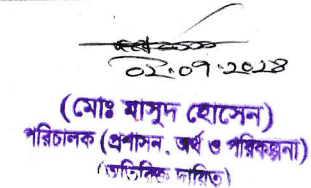 ০২.০৭.২০২৪
(মোঃ মাসুদ হোসেন)
পরিচালক (প্রশাসন, অর্থ ও পরিকল্পনা)
(অতিরিক্ত দায়িত্ব)